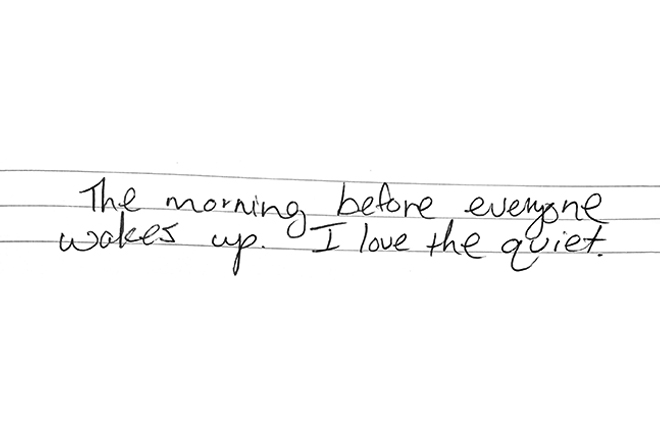 The morning before everyone
wakes up. I love the quiet.